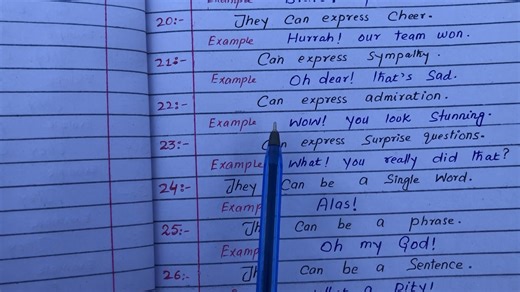 Example
20:- They Can express Cheer.
Example Hurrah! our team won.
21:- Can express Sympathy.
Example Oh dear! that's Sad.
22:- Can express admiration.
Example WOW! you look Stunning.
23:- Can express Surprise questions.
Example What! you really did that?
24:- They Can be a Single Word.
Example Alas!
25:- They Can be a phrase.
Example Oh my God!
26:- They Can be a Sentence.
Pity!